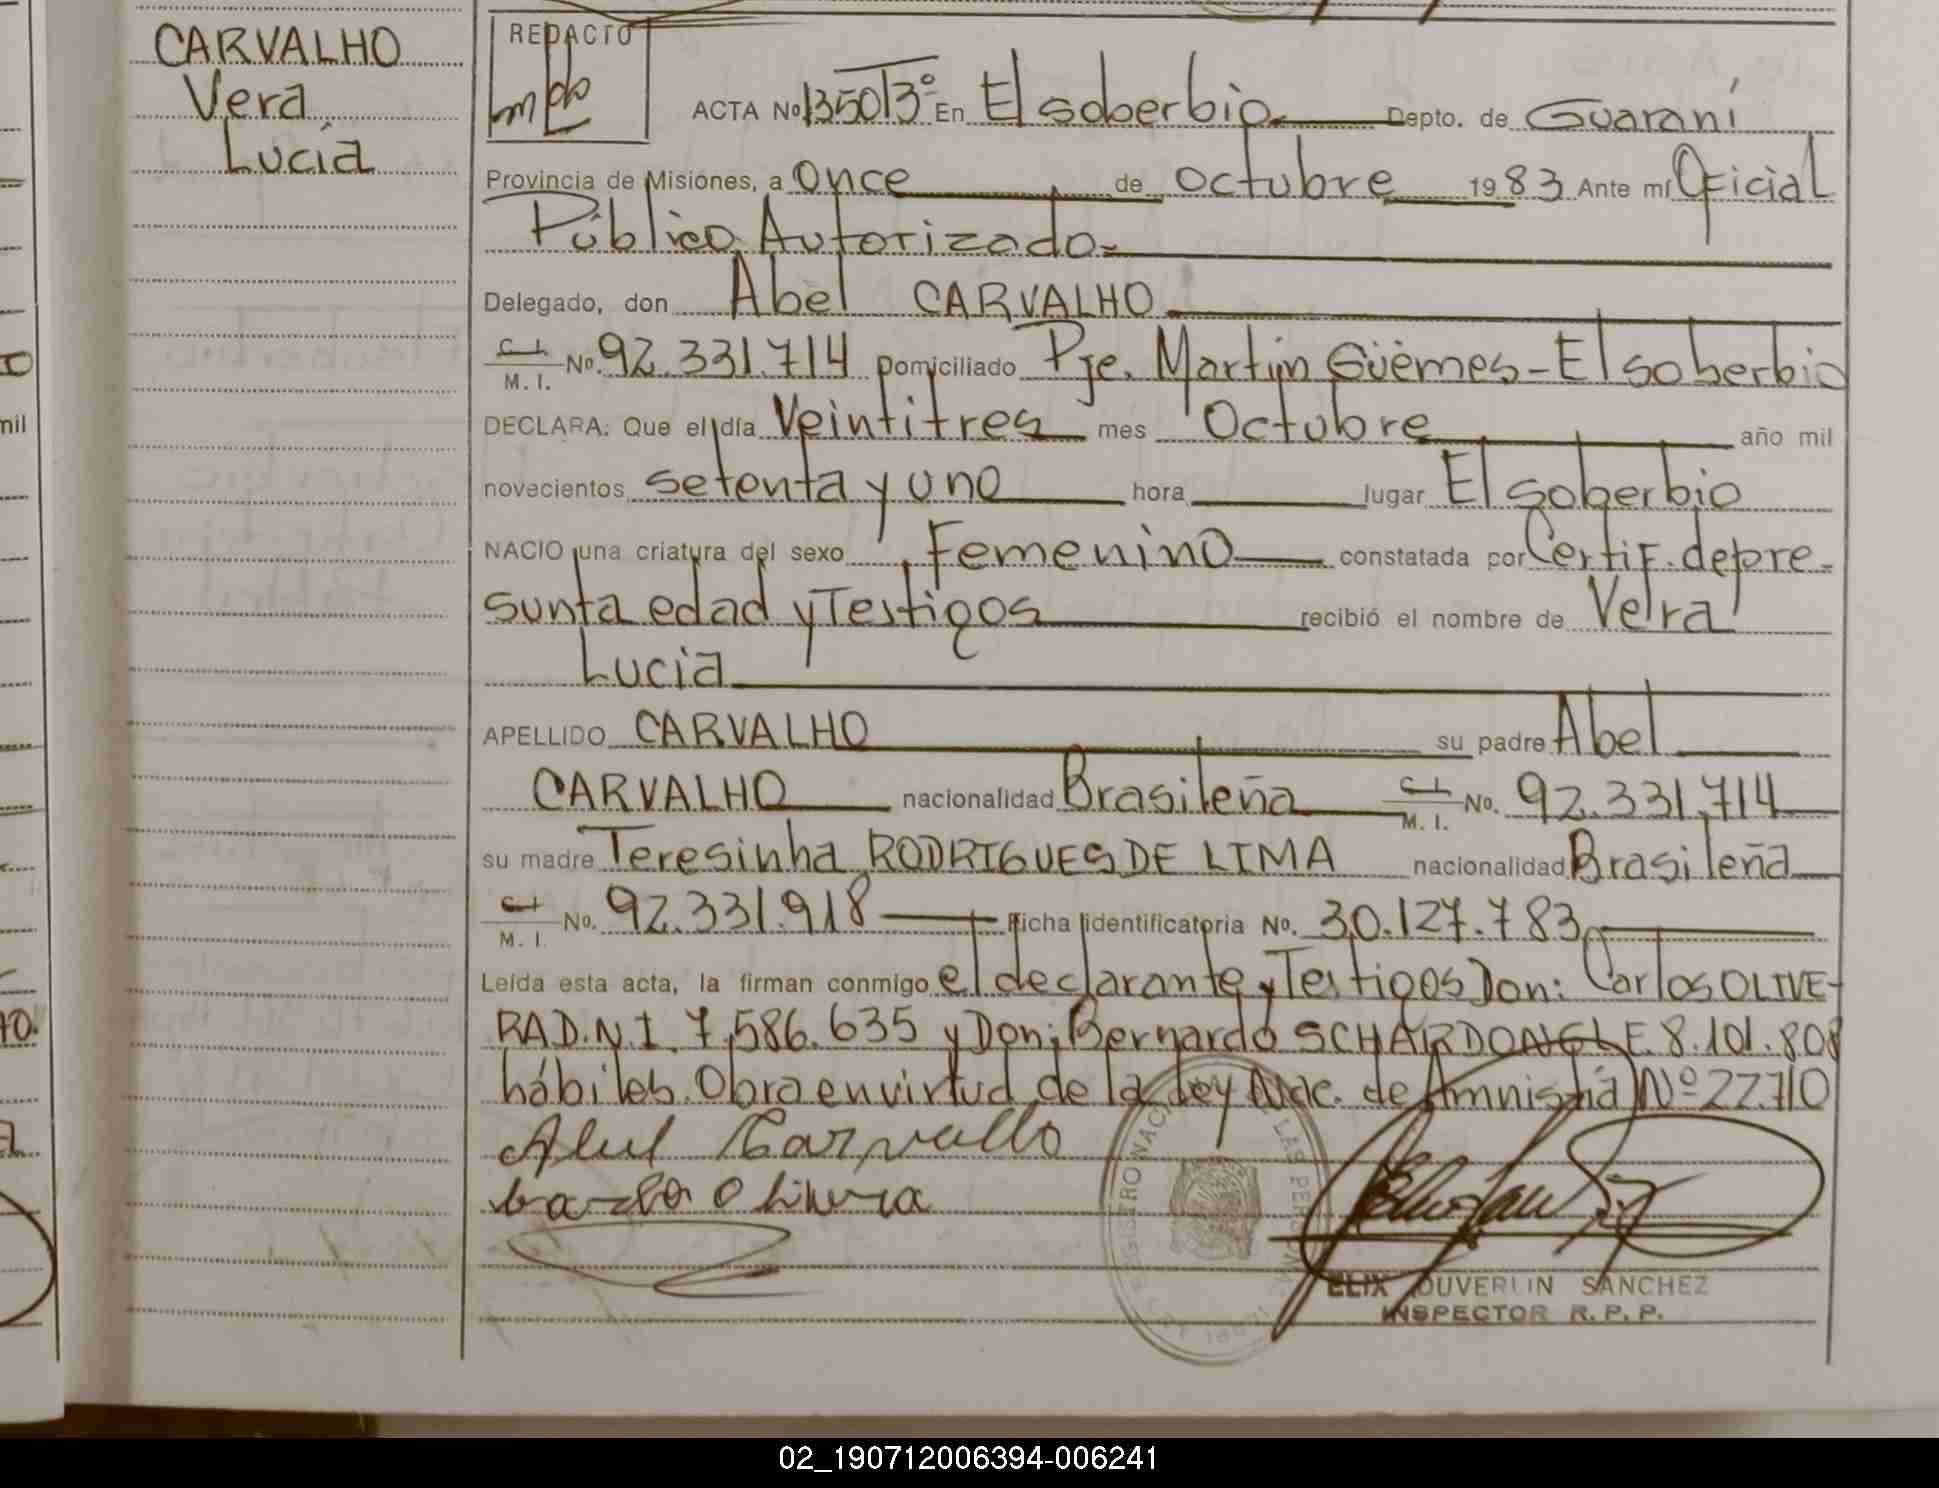 CARVALHO
Vera
Lucía
REDACTO
ACTA Nº 1350 T3º En El soberbio Depto. de Guaraní
Provincia de Misiones, a Once de Octubre 1983 Ante mí Oficial
Público Autorizado=
Delegado, don Abel CARVALHO
C.I. M. I. No. 92.331.714 Domiciliado Pje. Martín Güemes - El soberbio
DECLARA: Que el día Veintitres mes Octubre año mil
novecientos setenta y uno hora lugar El soberbio
NACIO una criatura del sexo Femenino constatada por Certif. de pre-
sunta edad y Testigos recibió el nombre de Vera
Lucia
APELLIDO CARVALHO su padre Abel
CARVALHO nacionalidad Brasileña C.I. M. I. No. 92.331.714
su madre Teresinha RODRIGUES DE LIMA nacionalidad Brasileña
C.I. M. I. No. 92.331.918 Ficha identificatoria No. 30.127.783
Leída esta acta, la firman conmigo el declarante y Testigos Don: Carlos OLIVE-
RA D.N.I. 7.586.635 y Don: Bernardo SCHARDONG L.E. 8.101.808
hábiles. Obra en virtud de la Ley Nac. de Amnistía Nº 22.710
Abel Carvallo
Carlos Olivera
REGISTRO NACI LAS PERSONAS
ELIX DUVERLIN SANCHEZ
INSPECTOR R. P. P.
mil
02_190712006394-006241